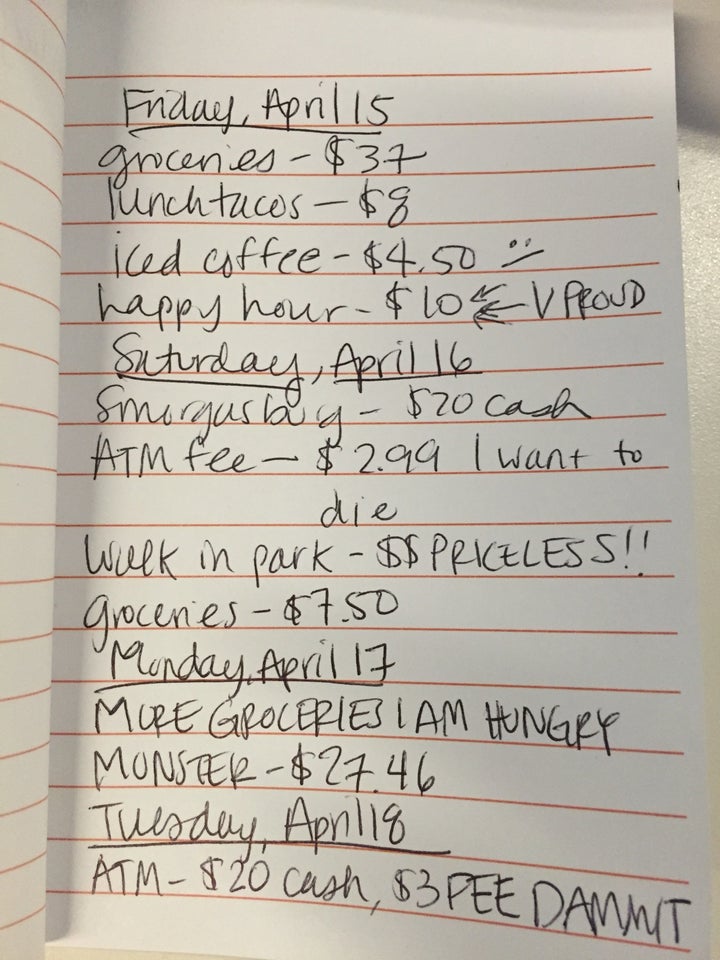 Friday, April 15
groceries - $37
lunch tacos - $8
iced coffee - $4.50 :/
happy hour - $10 ← V PROUD
Saturday, April 16
Smorgusburg - $20 cash
ATM fee - $2.99 I want to
die
Walk in park - $$ PRICELESS!!
groceries - $7.50
Monday, April 17
MORE GROCERIES I AM HUNGRY
MONSTER - $27.46
Tuesday, April 18
ATM - $20 cash, $3 FEE DAMMIT